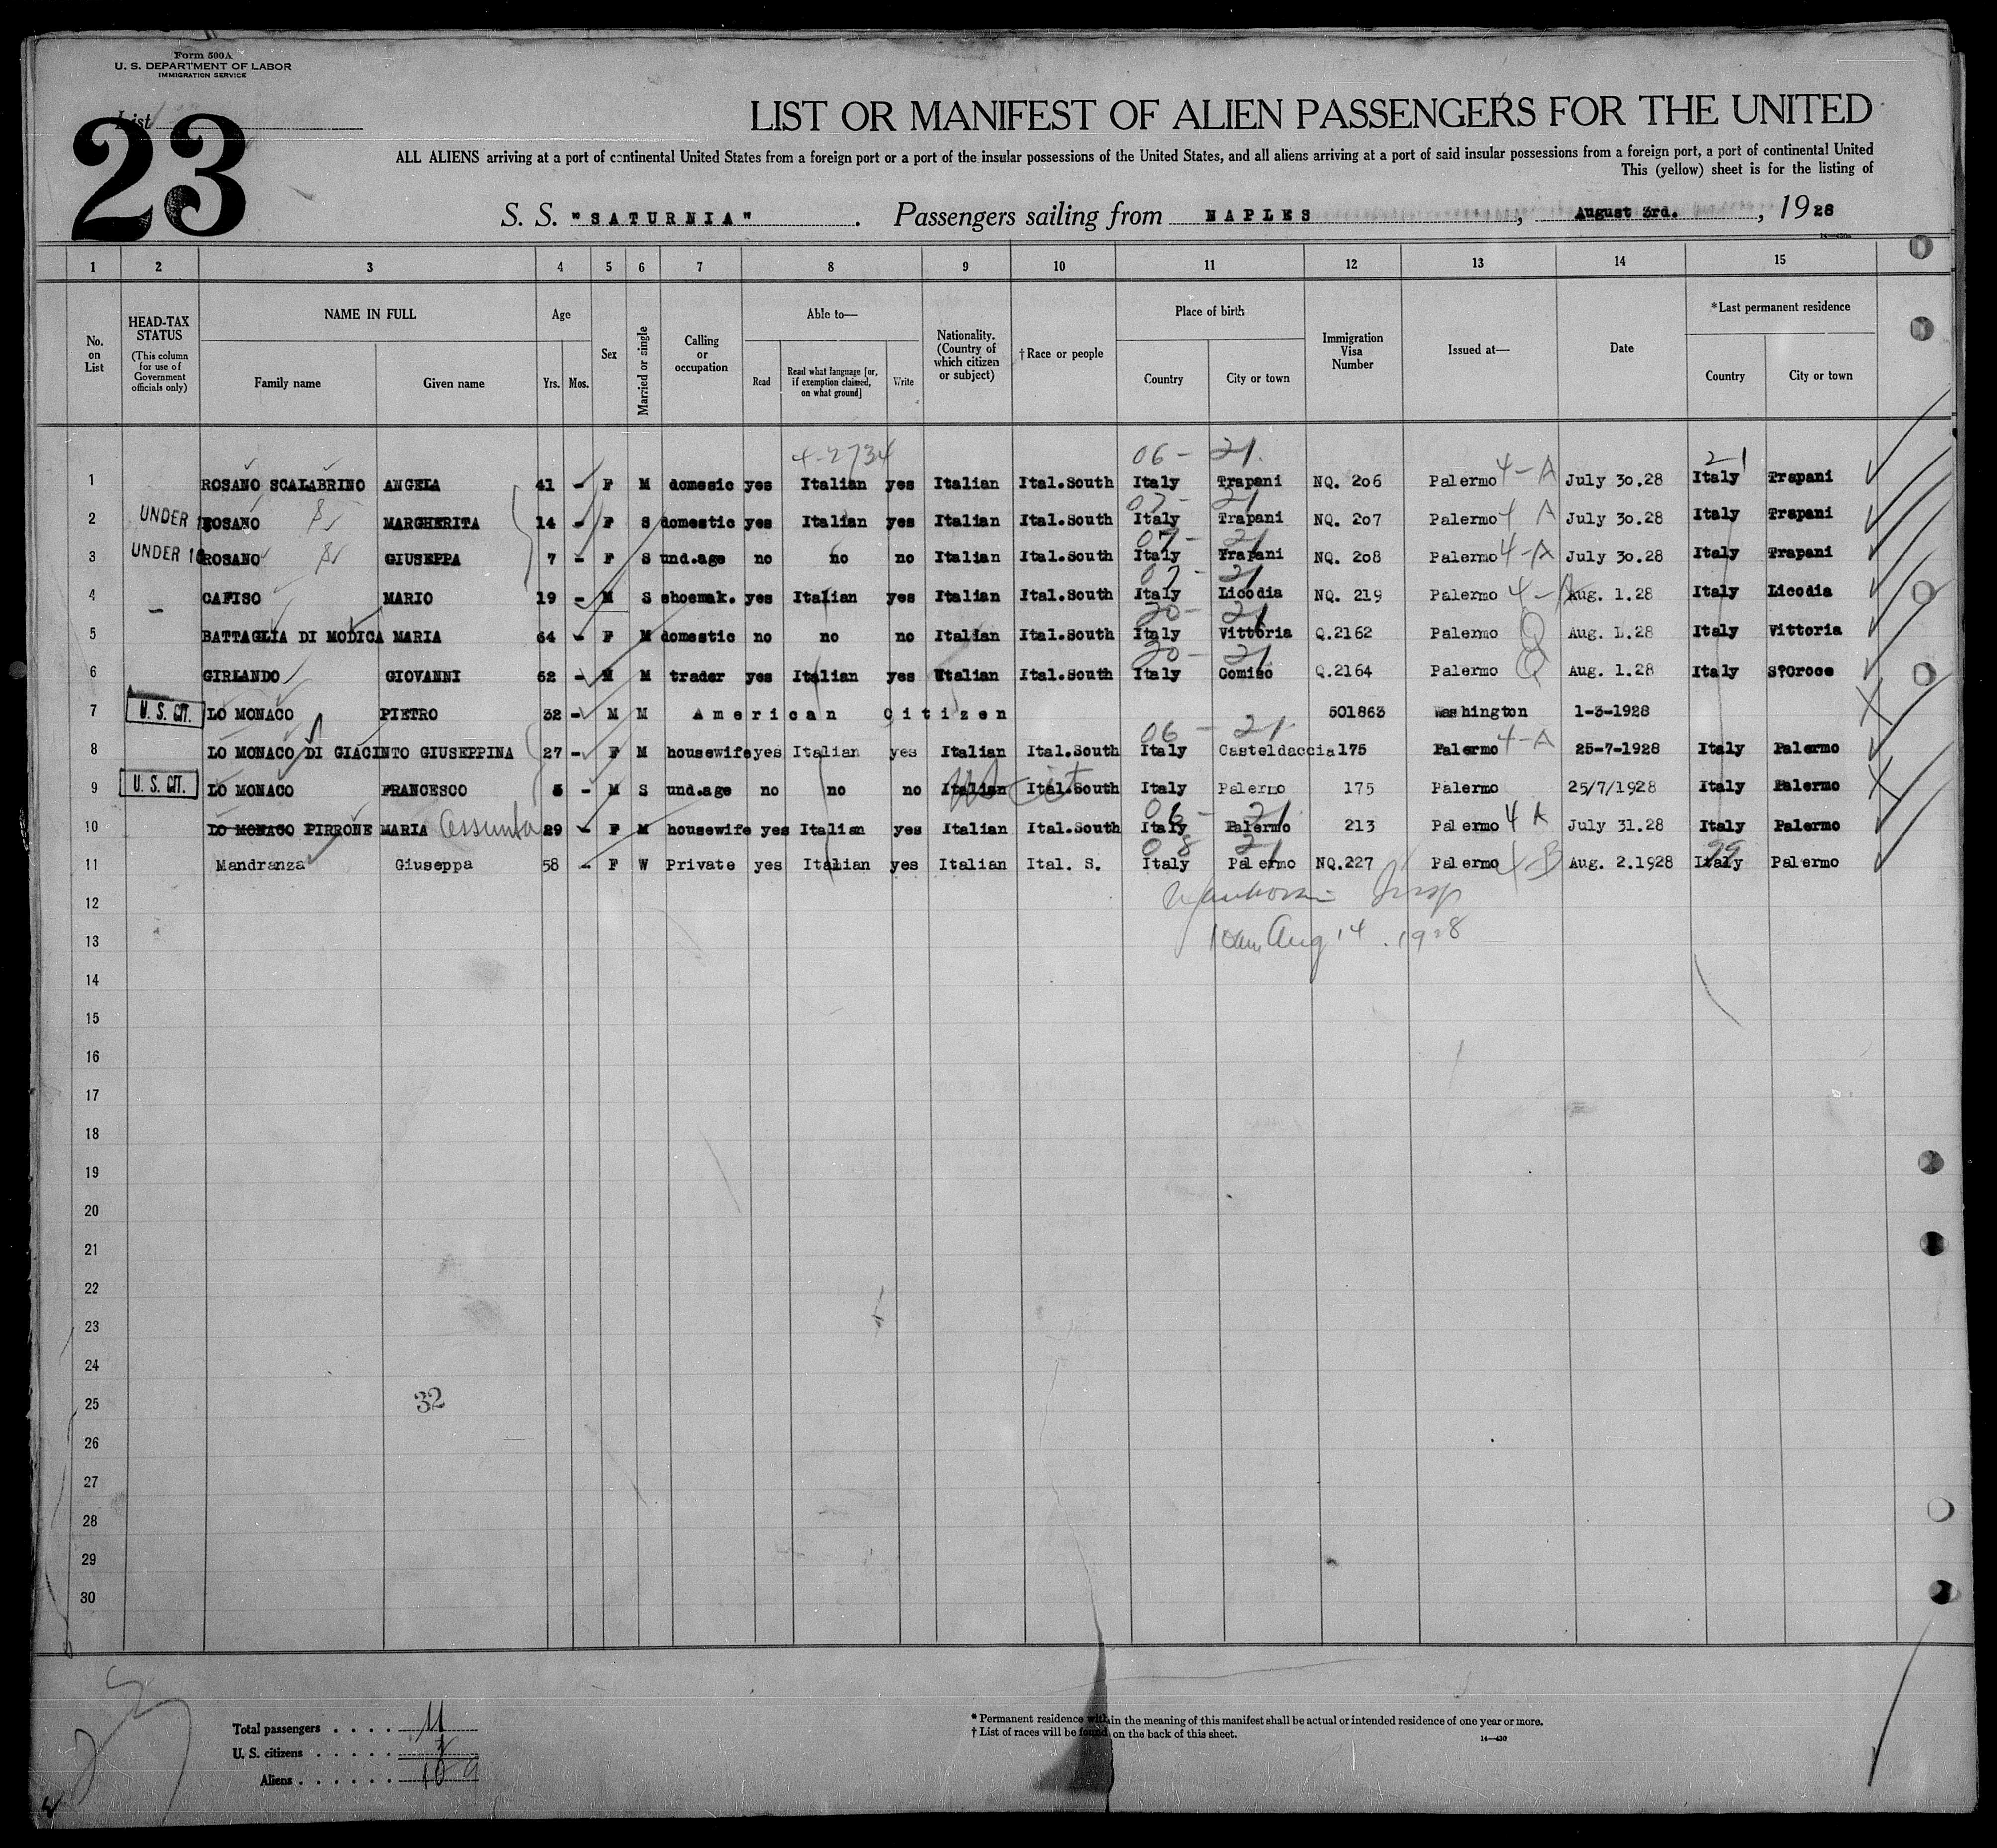 Form 500A
U. S. DEPARTMENT OF LABOR
IMMIGRATION SERVICE
List
23
LIST OR MANIFEST OF ALIEN PASSENGERS FOR THE UNITED
ALL ALIENS arriving at a port of continental United States from a foreign port or a port of the insular possessions of the United States, and all aliens arriving at a port of said insular possessions from a foreign port, a port of continental United
This (yellow) sheet is for the listing of
S. S. "SATURNIA". Passengers sailing from NAPLES, August 3rd., 1928
1 2 3 4 5 6 7 8 9 10 11 12 13 14 15
No. on List
HEAD-TAX STATUS
(This column for use of Government officials only)
NAME IN FULL
Family name Given name
Age
Yrs. Mos.
Sex
Married or single
Calling or occupation
Able to—
Read
Read what language [or, if exemption claimed, on what ground]
Write
Nationality. (Country of which citizen or subject)
†Race or people
Place of birth
Country City or town
Immigration Visa Number
Issued at—
Date
*Last permanent residence
Country City or town
4-2734 06 - 21. 21
1 ROSANO SCALABRINO ANGELA 41 - F M domesic yes Italian yes Italian Ital.South Italy Trapani NQ. 206 Palermo 4-A July 30.28 Italy Trapani
07- 21
2 UNDER 1 ROSANO MARGHERITA 14 - F S domestic yes Italian yes Italian Ital.South Italy Trapani NQ. 207 Palermo 4 A July 30.28 Italy Trapani
07- 21
3 UNDER 16 ROSANO GIUSEPPA 7 - F S und.age no no no Italian Ital.South Italy Trapani NQ. 208 Palermo 4-A July 30.28 Italy Trapani
07- 21
4 - CAFISO MARIO 19 - M S shoemak. yes Italian yes Italian Ital.South Italy Licodia NQ. 219 Palermo 4-A Aug. 1.28 Italy Licodia
20- 21
5 BATTAGLIA DI MODICA MARIA 64 - F M domestic no no no Italian Ital.South Italy Vittoria Q.2162 Palermo Q Aug. 1.28 Italy Vittoria
20- 21
6 GIRLANDO GIOVANNI 62 - M M trader yes Italian yes Italian Ital.South Italy Comiso Q.2164 Palermo Q Aug. 1.28 Italy S?Croce
7 U. S. CIT. LO MONACO PIETRO 32 - M M American Citizen 501863 Washington 1-3-1928
06 - 21.
8 LO MONACO DI GIACINTO GIUSEPPINA 27 - F M housewife yes Italian yes Italian Ital.South Italy Casteldaccia 175 Palermo 4-A 25-7-1928 Italy Palermo
9 U. S. CIT. LO MONACO FRANCESCO 5 - M S und.age no no no Italian Ital.South Italy Palermo 175 Palermo 25/7/1928 Italy Palermo
06 - 21
10 LO MONACO PIRRONE MARIA Assunta 29 - F M housewife yes Italian yes Italian Ital.South Italy Palermo 213 Palermo 4 A July 31.28 Italy Palermo
08 21 99
11 Mandranza Giuseppa 58 - F W Private yes Italian yes Italian Ital. S. Italy Palermo NQ.227 Palermo 4-B Aug. 2.1928 Italy Palermo
12
13 10am Aug 14. 1928
14
15
16
17
18
19
20
21
22
23
24
25 32
26
27
28
29
30
Total passengers . . . . 11
U. S. citizens . . . . . 2
Aliens . . . . . . 10 9
* Permanent residence within the meaning of this manifest shall be actual or intended residence of one year or more.
† List of races will be found on the back of this sheet.
14—430